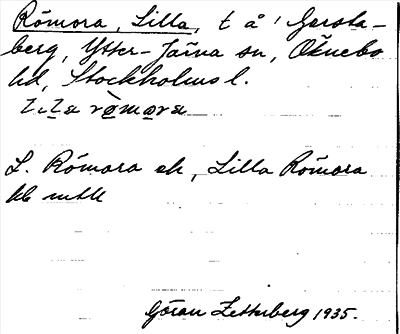 Römora, Lilla, t å Gersta-
berg, Ytter-Järna sn, Öknebo
hd, Stockholms l.
L. Römora ek, Lilla Römora
kb mtlt
Göran Zetterberg 1935.